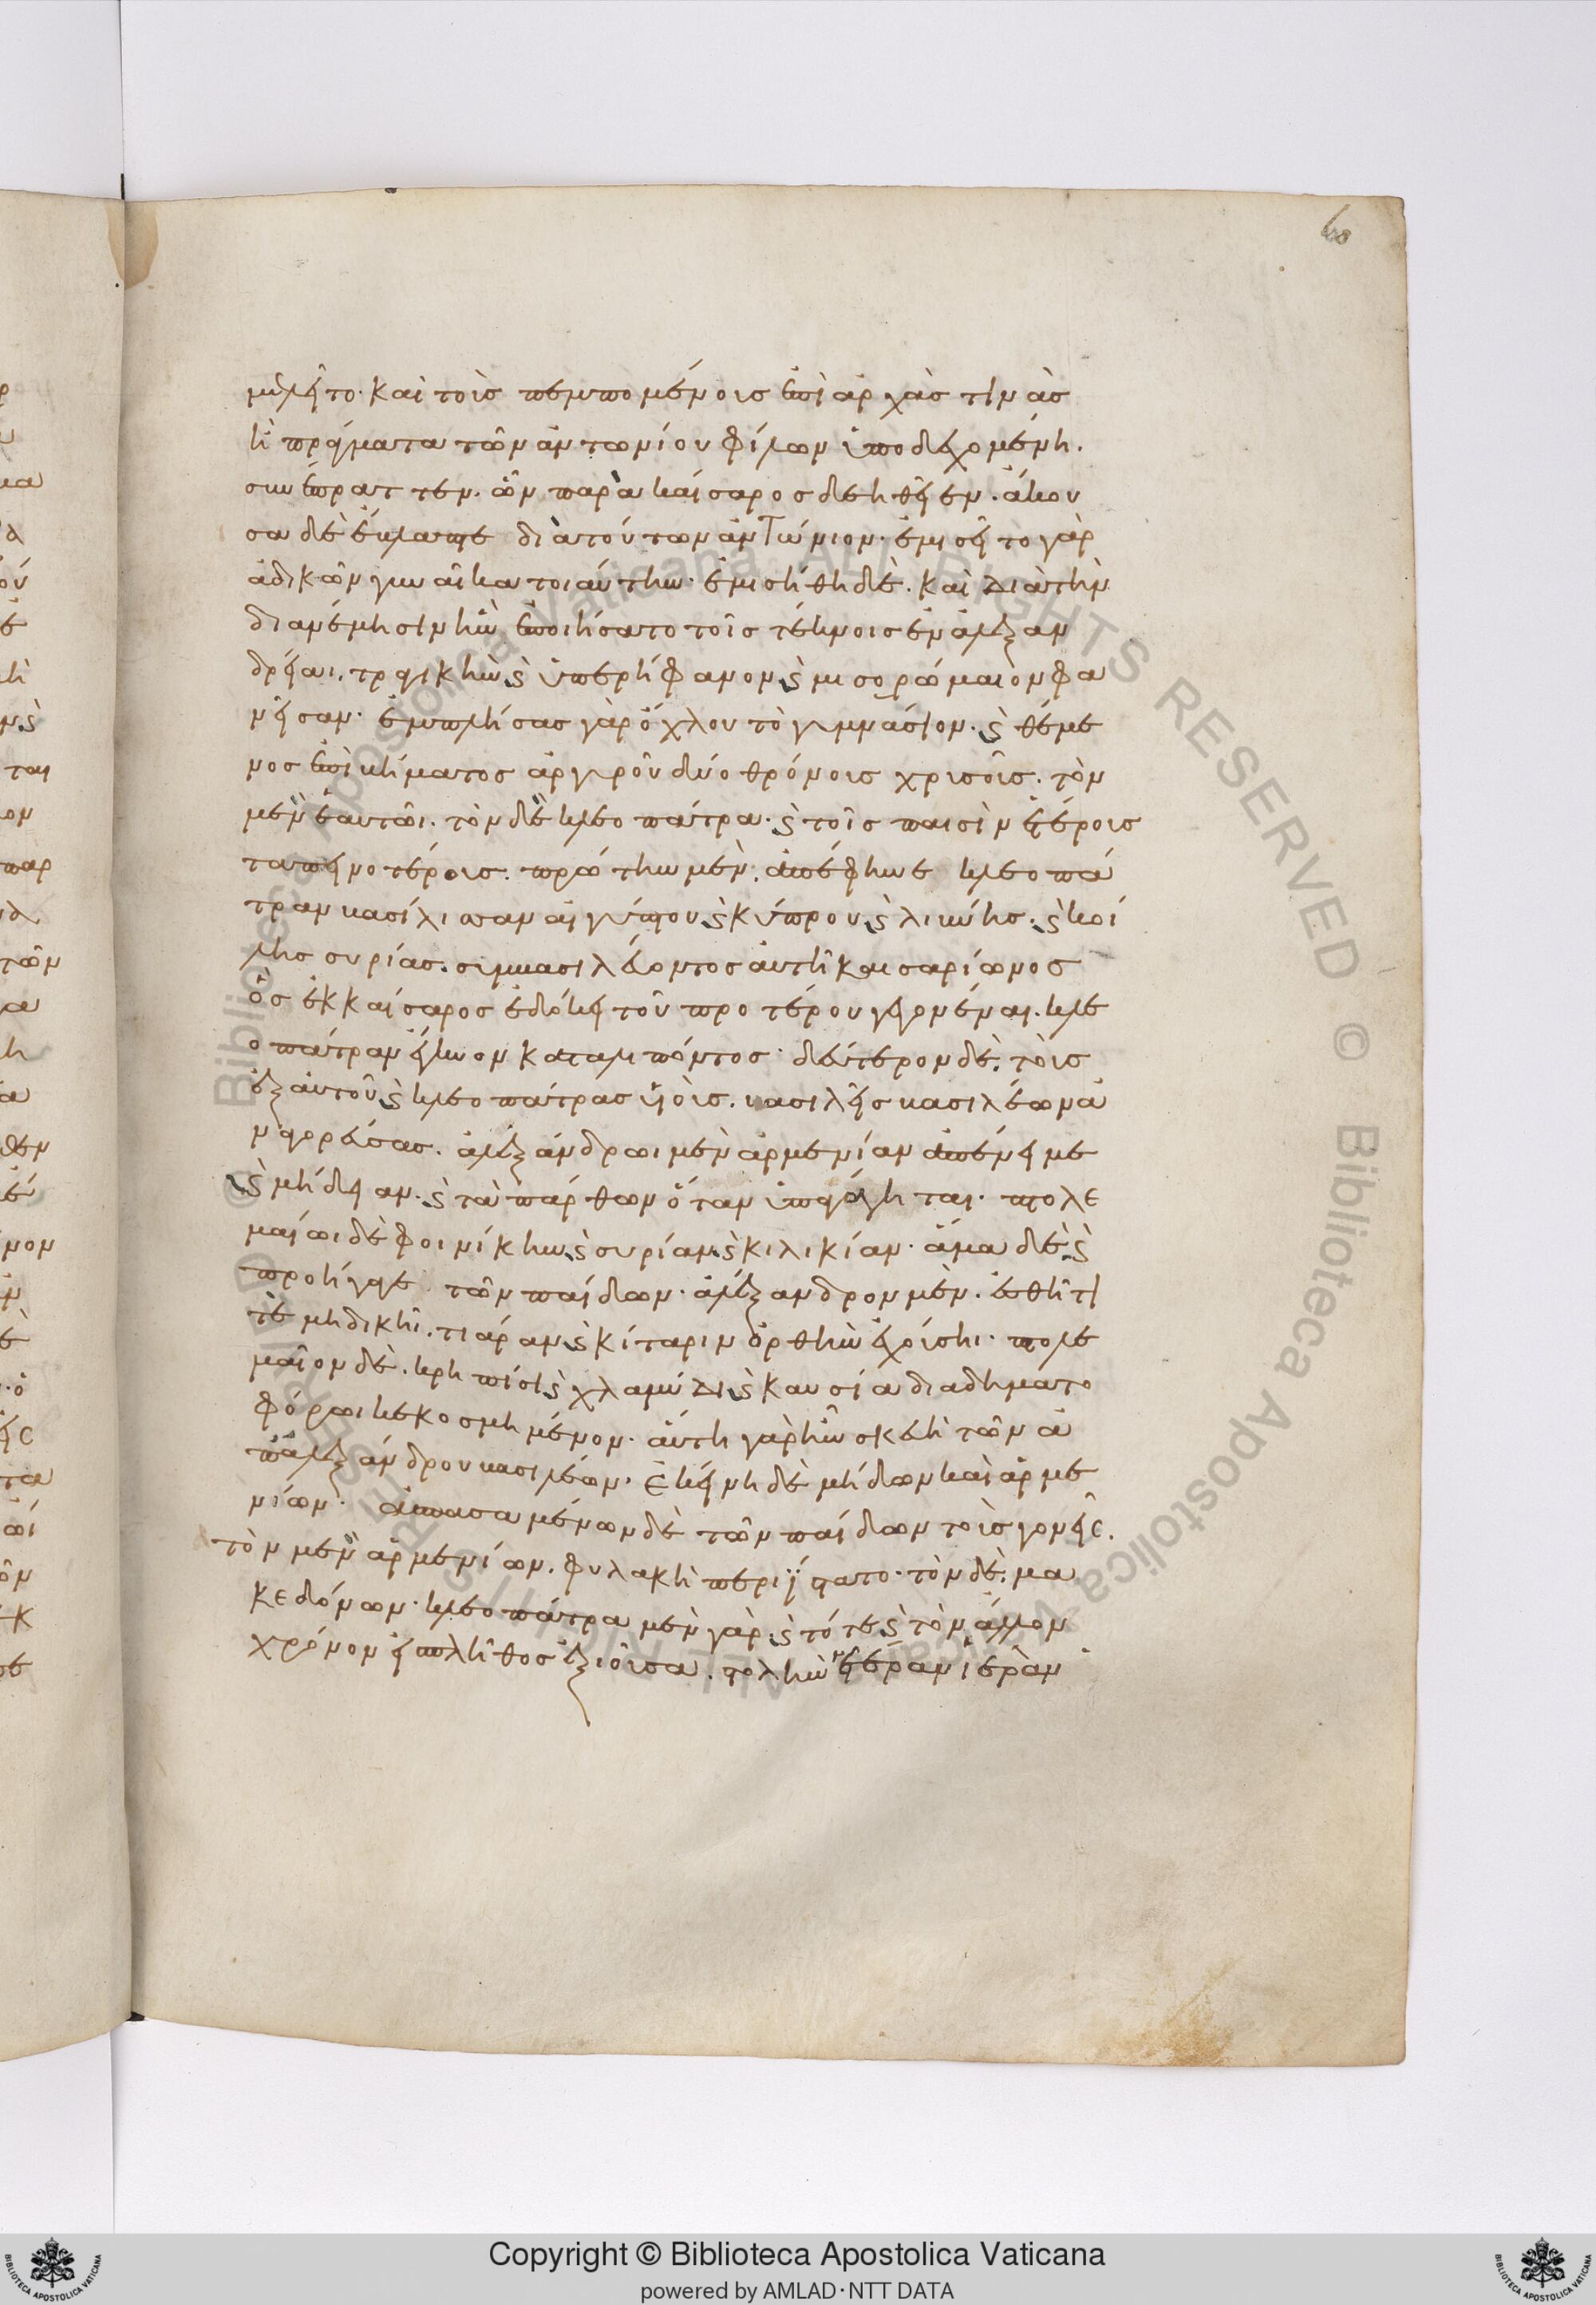 60
μελεῖτο· καὶ τοῖς πεμπομένοις ἐπὶ ἀρχάς τινας
ἢ πράγματα τῶν ἀντωνίου φίλων ὑποδεχομένη.
συνέπραττεν. ὧν παρὰ καίσαρος δεηθεῖεν. ἄκου
σα δὲ ἔβλαπτε διὰ τούτων ἀντώνιον· ἐμισεῖτο γὰρ
ἀδικῶν γυναῖκα τοιαύτην· ἐμισήθη δὲ. καὶ διὰ τὴν
διανέμησιν ἣν ἐποιήσατο τοῖς τέκνοις ἐν ἀλεξαν
δρείαι. τραγικὴν ϗ ὑπερήφανον ϗ μισορώμαιον φα
νεῖσαν· ἐμπλήσας γὰρ ὄχλου τὸ γυμνάσιον. ϗ θέμε
νος ἐπὶ βήματος ἀργυροῦ δύο θρόνοις χρισοῖς. τὸν
μὲν ἑαυτῶι. τὸν δὲ κλεοπάτρα· ϗ τοῖς παισὶν ἑτέροις
ταπεινοτέροις. πρώτην μὲν. ἀπέφηνε κλεοπά
τραν βασίλισσαν αἰγύπτου ϗ κύπρου ϗ λιβύης. ϗ κοί
λης συρίας. συμβασιλεύοντος αὐτῆ καισαρίωνος
ὃς ἐκ καίσαρος ἐδόκει τοῦ προτέρου γεγονέναι. κλε
οπάτραν ἔγκυον καταλιπόντος· δεύτερον δὲ. τοὺς
ἐξ αὐτοῦ ϗ κλεοπάτρας υἱοὺς. βασιλεῖς βασιλέων ἀ
ναγορεύσας. ἀλεξάνδρωι μὲν ἀρμενίαν ἀπένειμε
ϗ μήδειαν. ϗ τὰ πάρθων ὅταν ὑπαγάγηται. πτολε
μαίωι δὲ φοινίκην ϗ συρίαν ϗ κιλικίαν· ἅμα δὲ ϗ
προήγαγε τῶν παίδων. ἀλέξανδρον μὲν. ἐσθῆτί
τε μηδικῆ. τιάραν ϗ κίταριν ὀρθὴν ἐχούσηι. πτολε
μαῖον δὲ. κρηπίσι ϗ χλαμύδι ϗ καυσία διαδηματο
φόρωι κεκοσμημένον· αὕτη γὰρ ἦν σκευὴ τῶν ἀ
π᾽ ἀλεξάνδρου βασιλέων. ἐκείνη δὲ μήδων καὶ ἀρμε
νίων· ἀσπασαμένων δὲ τῶν παίδων τοὺς γονεῖς.
τὸν μὲν ἀρμενίων. φυλακὴ περιΐστατο· τὸν δὲ. μα
κεδόνων· κλεοπάτρα μὲν γὰρ. ϗ τότε ϗ τὸν ἄλλον
χρόνον εἰς πλῆθος ἐξιοῦσα. στολὴν ἑτέραν ἱερὰν